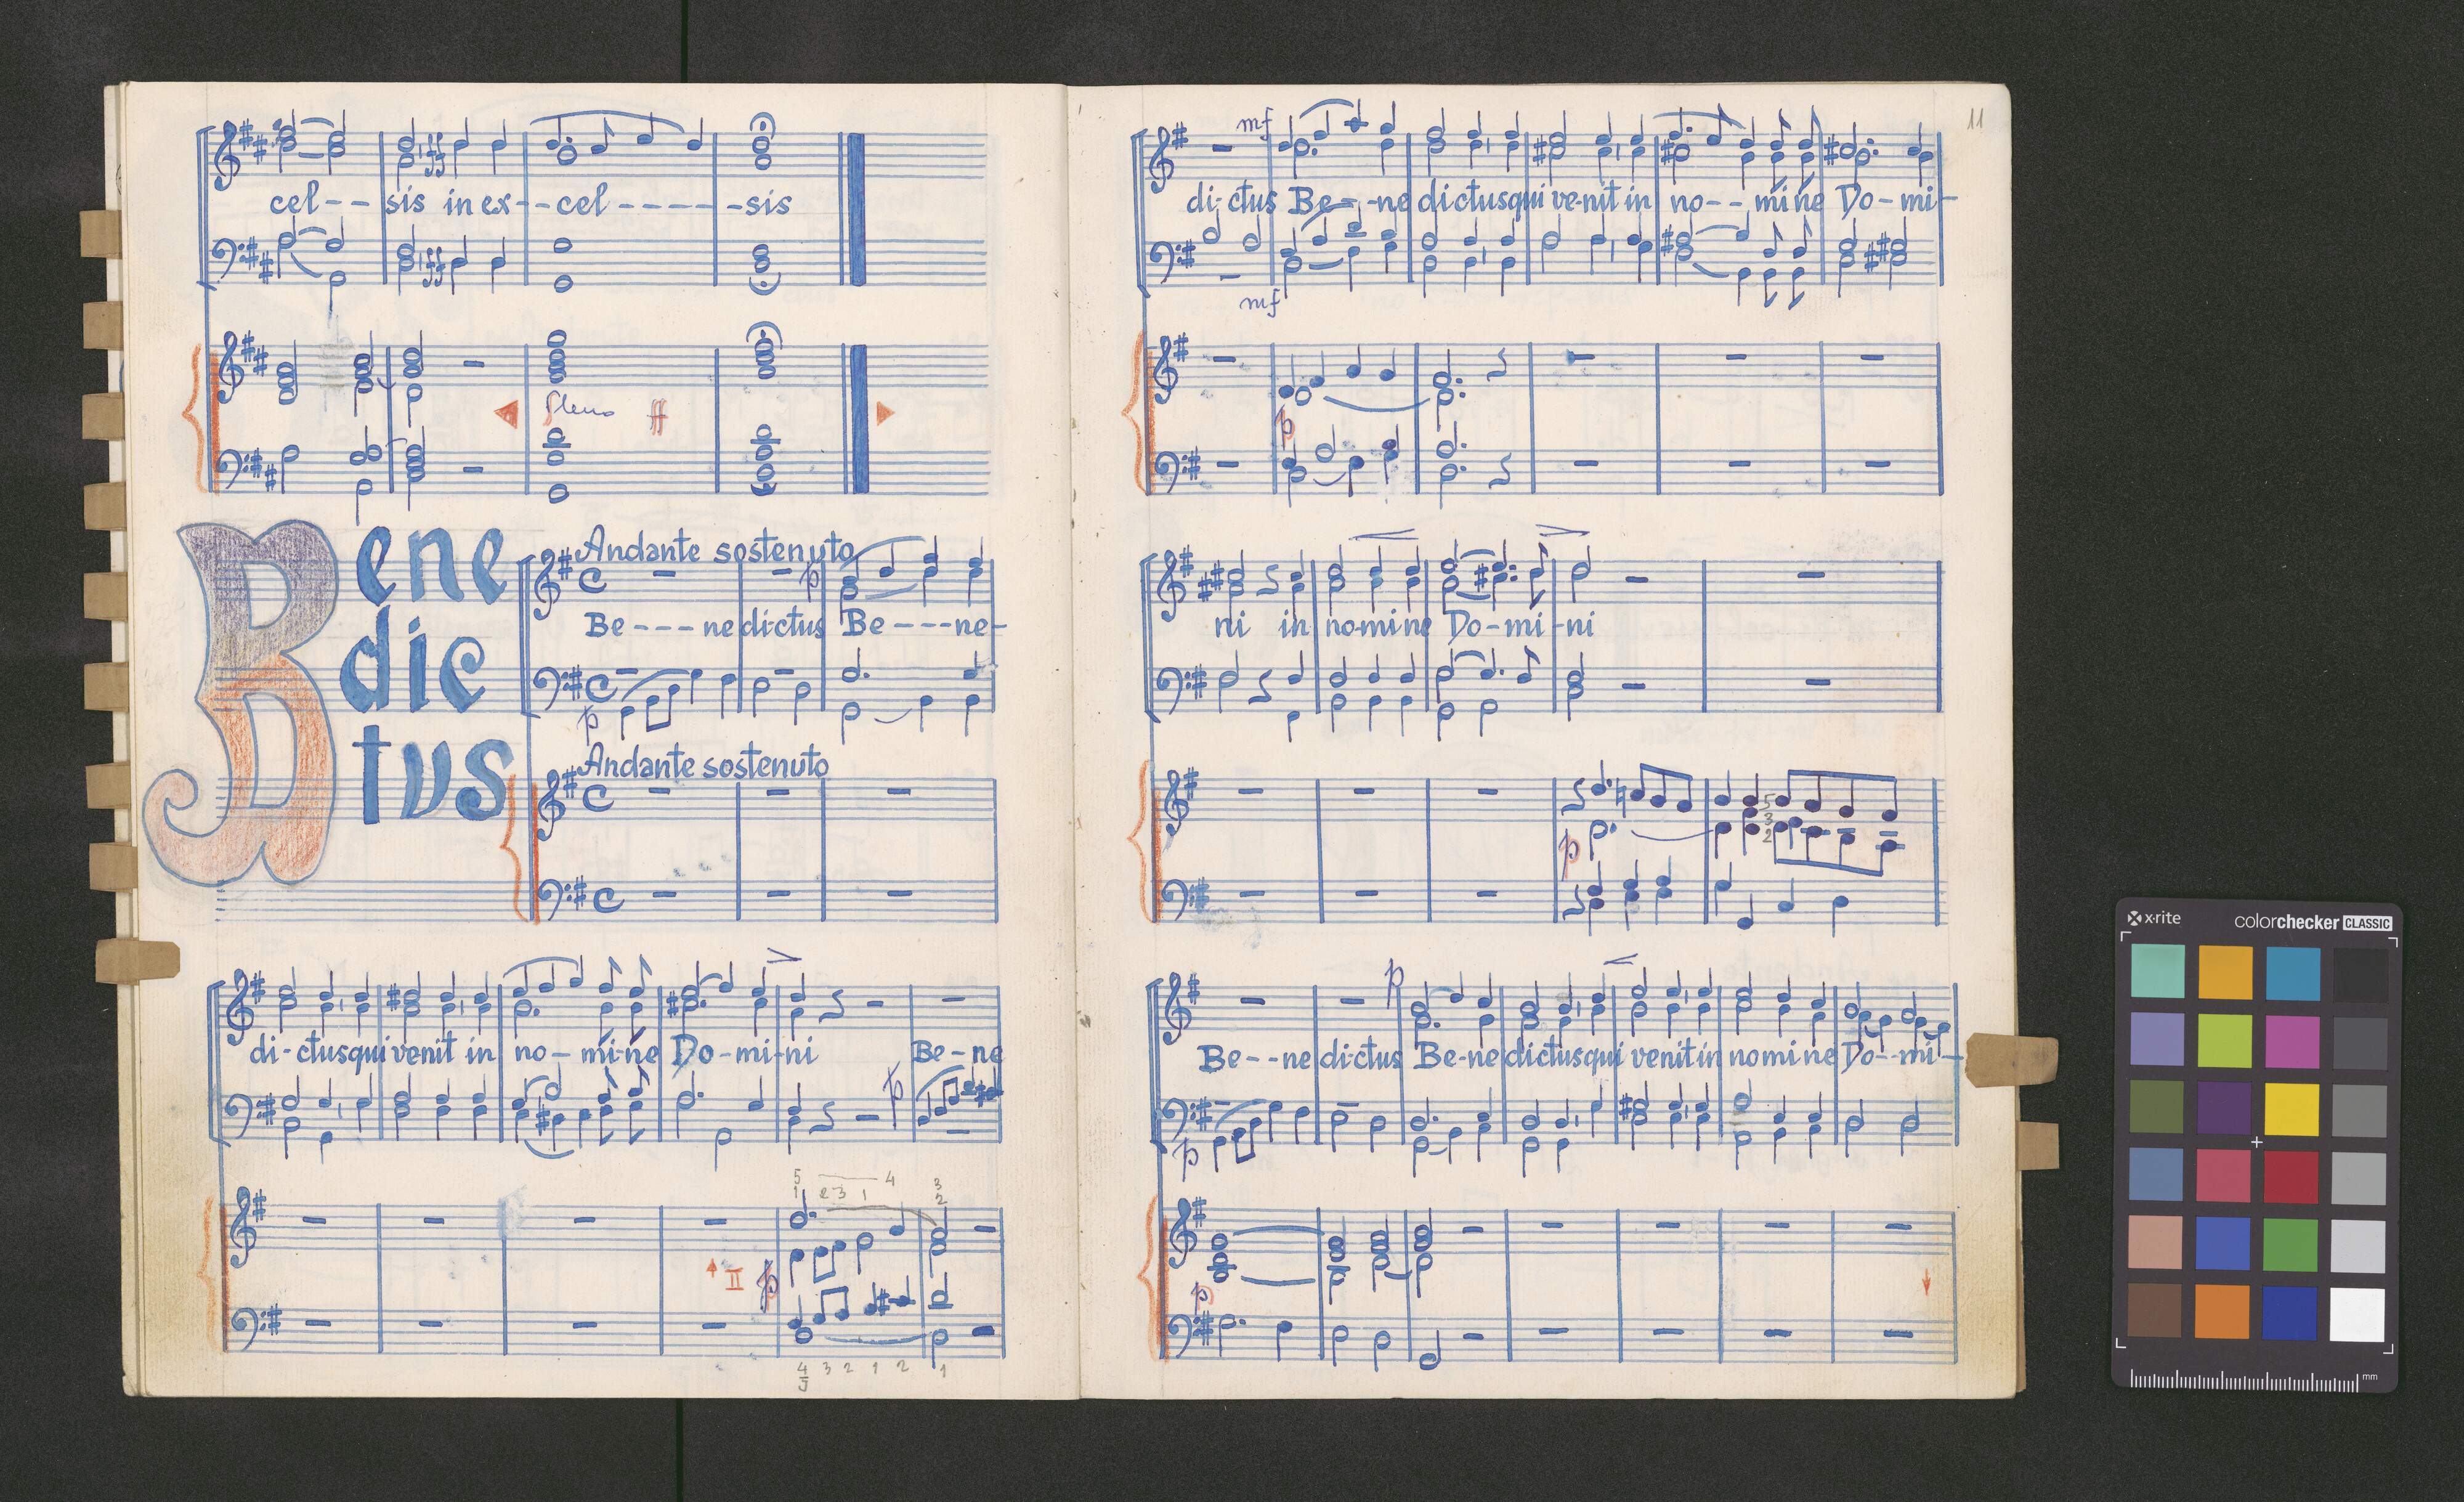 cel - - sis in ex - - cel - - - - - - sis
Pleno ff
Bene
dic
tus
Andante sostenuto
p
Be - - - ne dictus Be - - - ne -
p
Andante sostenuto
di - ctus qui venit in no - mine Do - mi - ni Be - ne
p
5 4 3
1 2 3 1 2
II p
4 3 2 1 2 1
5
11
mf
dictus Be - - ne dictus qui ve-nit in no - - mine Do - mi -
mf
p
ni in nomine Do - mi - ni
5
3
2
p
p
Be - - ne dictus Be - ne dictus qui venit in nomine Do - - mi -
p
p
x-rite colorchecker CLASSIC
mm